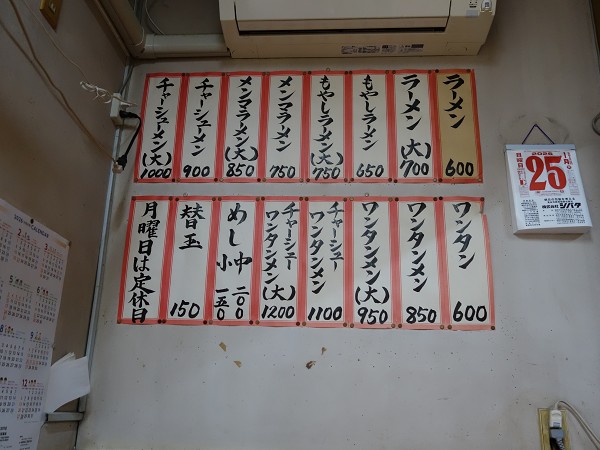 ラーメン
600
ラーメン(大)
700
もやしラーメン
650
もやしラーメン(大)
750
メンマラーメン
750
メンマラーメン(大)
850
チャーシューメン
900
チャーシューメン(大)
1000
ワンタン
600
ワンタンメン
850
ワンタンメン(大)
950
チャーシュー
ワンタンメン
1100
チャーシュー
ワンタンメン(大)
1200
めし中二〇〇
小一五〇
替玉
150
月曜日は定休日
25